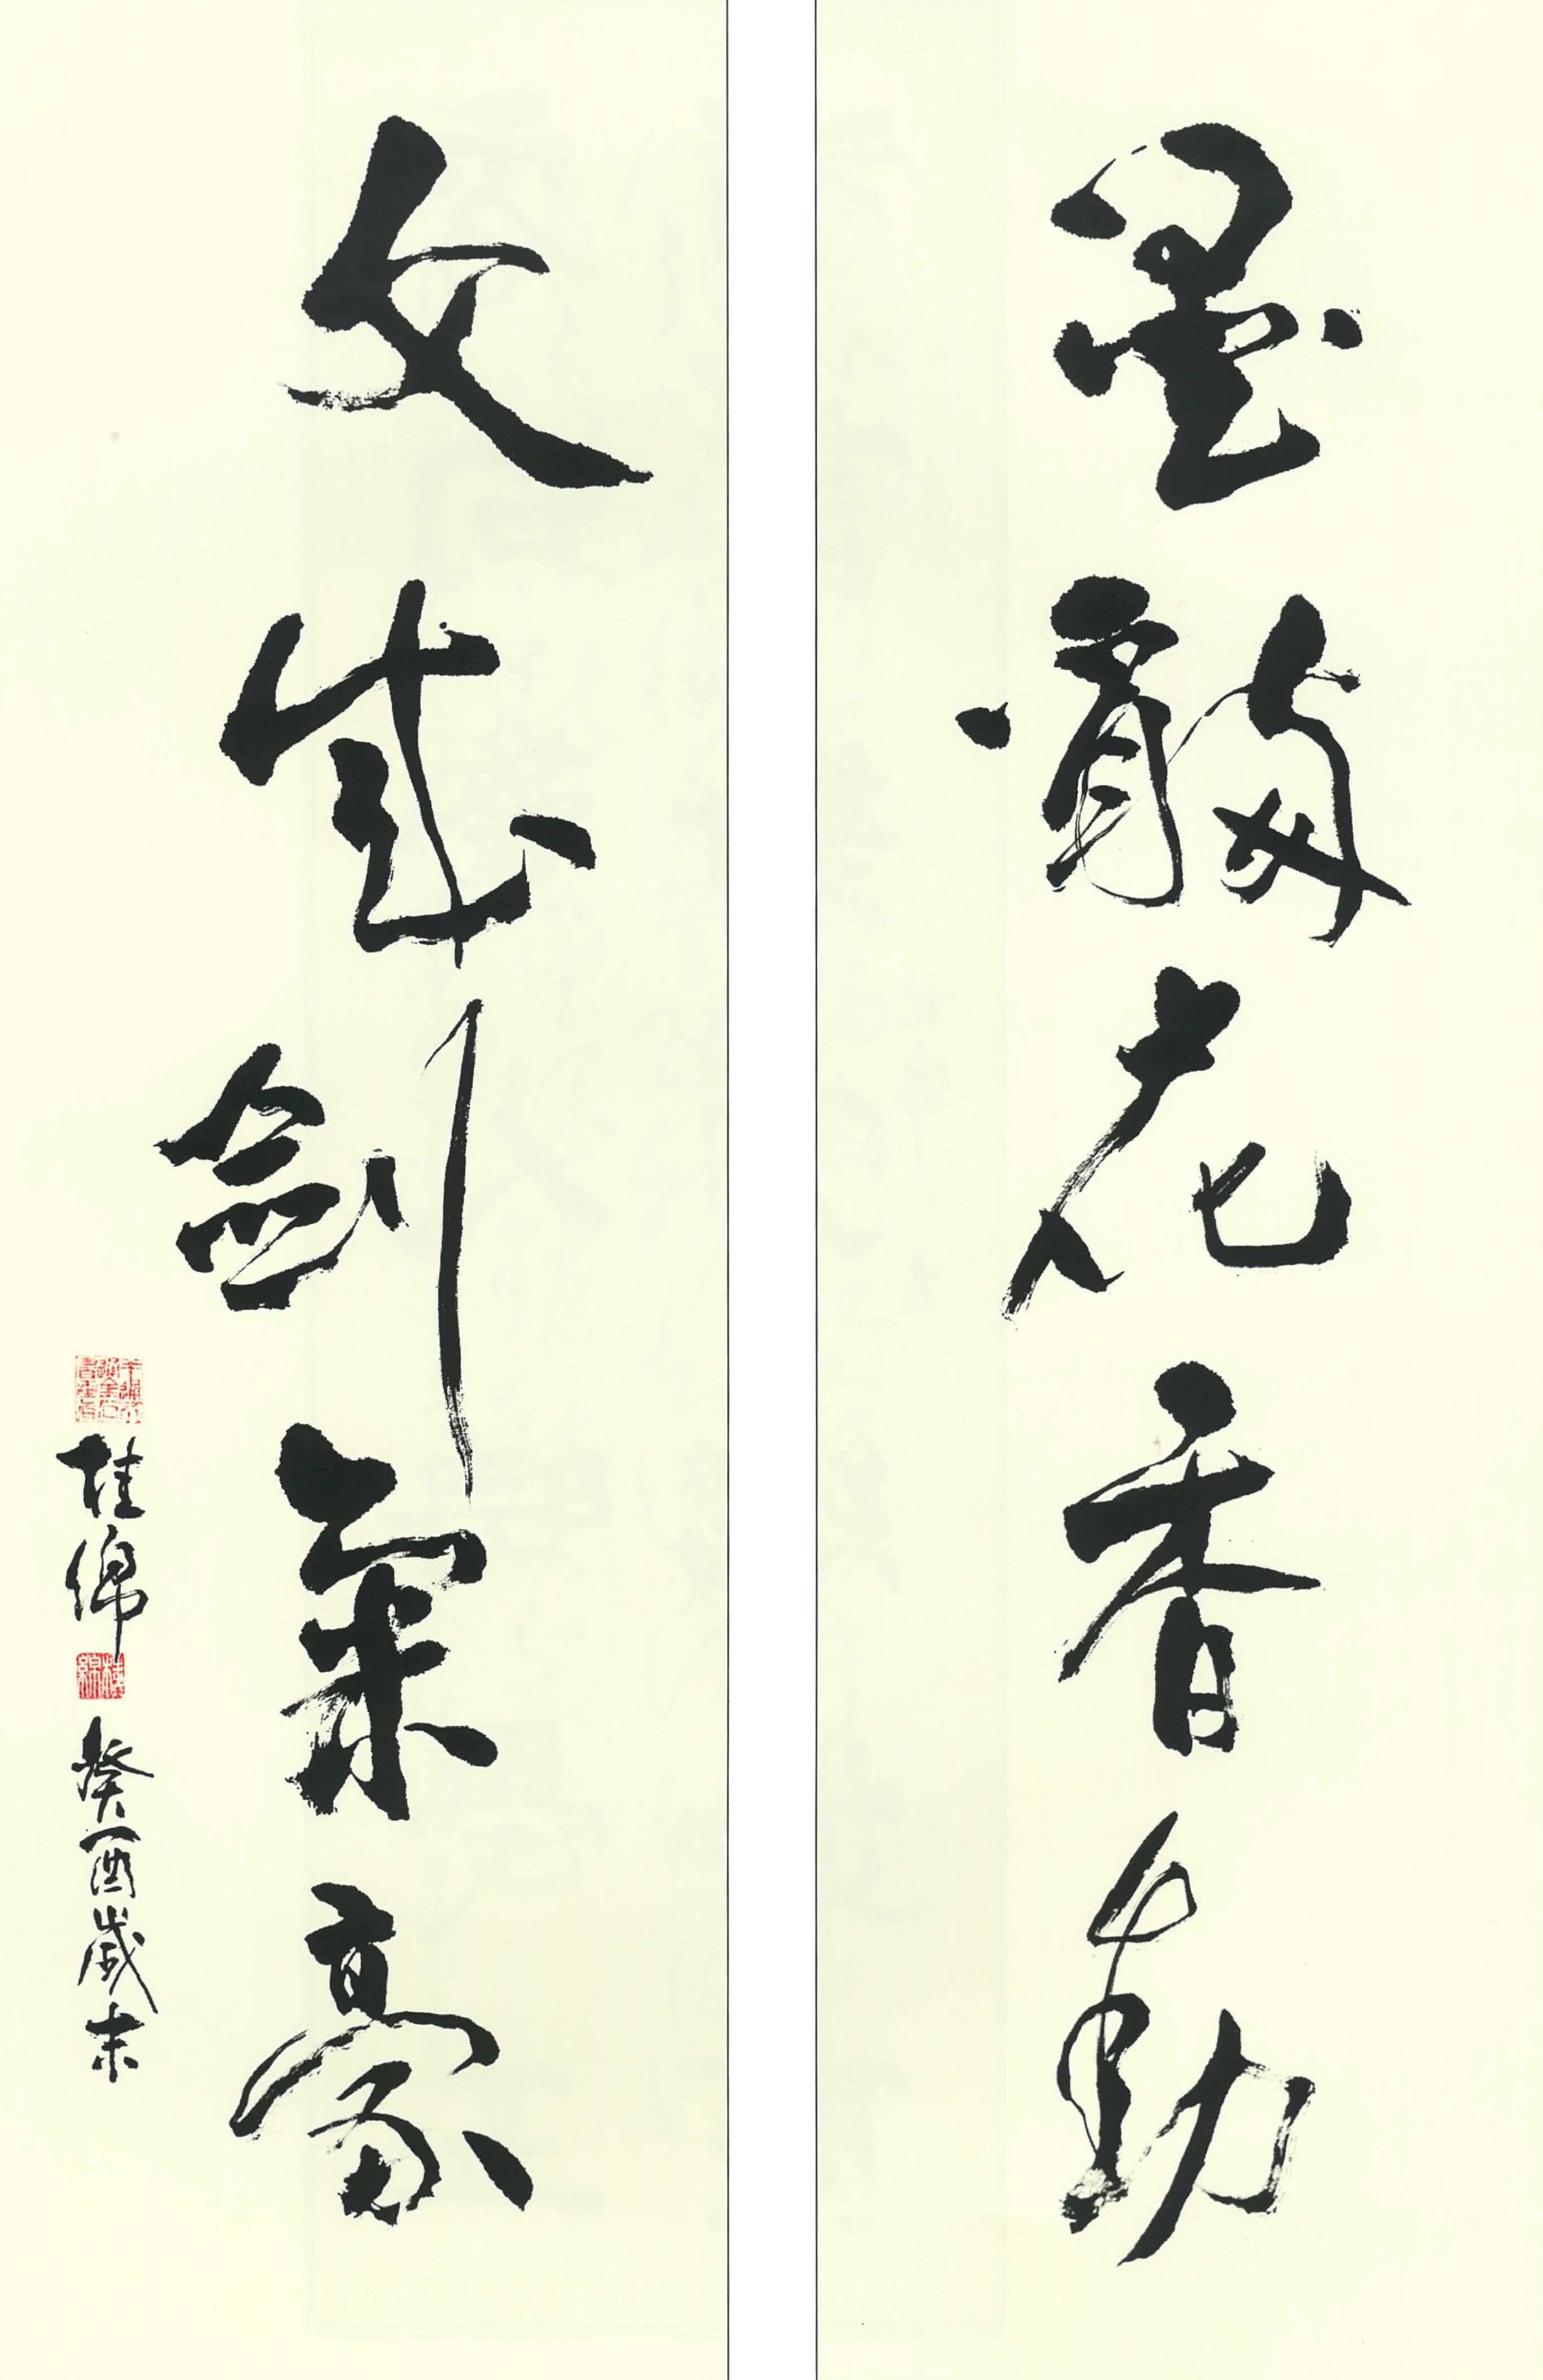 墨花香動
文成劍氣豪
桂綿
癸酉歲末